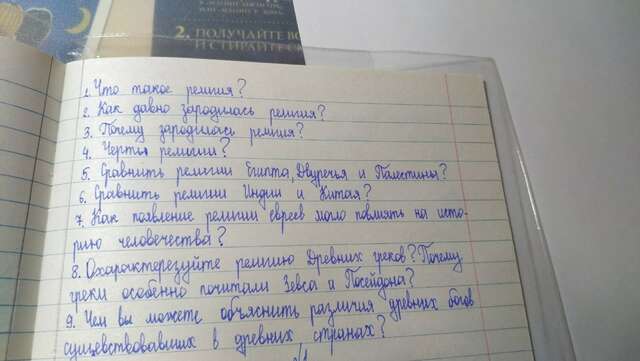 2. ПОЛУЧАЙТЕ ВО
И СТИРАЙТЕ СК
1. Что такое религия?
2. Как давно зародилась религия?
3. Почему зародилась религия?
4. Черты религии?
5. Сравнить религии Египта, Двуречья и Палестины?
6. Сравнить религии Индии и Китая?
7. Как появление религии евреев могло повлиять на исто-
рию человечества?
8. Охарактерезуйте религию Древних греков? Почему
греки особенно почитали Зевса и Посейдона?
9. Чем вы можете объяснить различия древних богов
существовавших в древних странах?